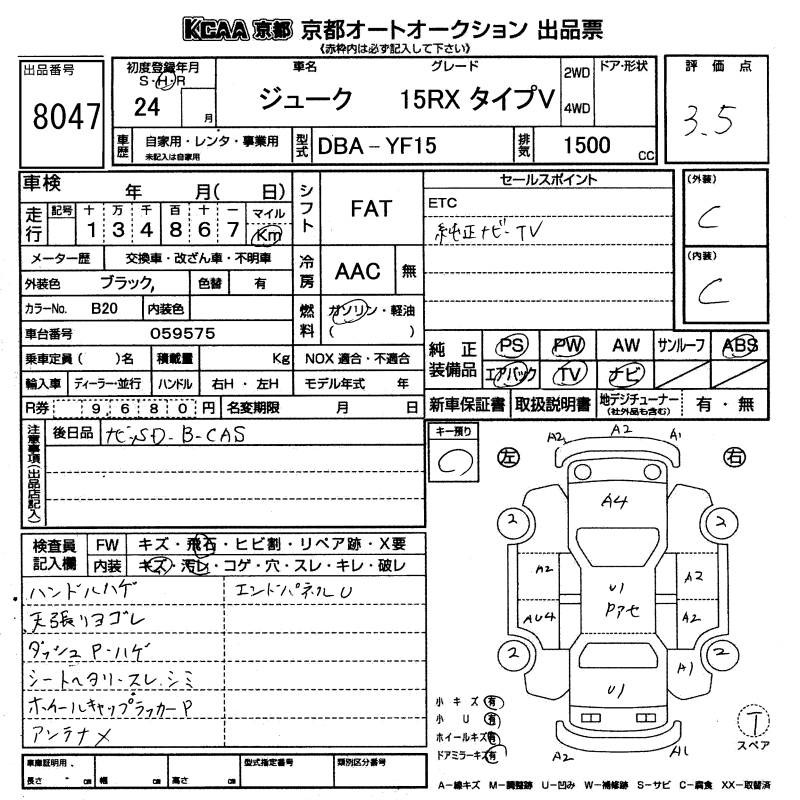 KCAA 京都 京都オートオークション 出品票
《赤枠内は必ず記入して下さい》
出品番号
8047
初度登録年月
S・H・R
24 月
車名 グレード
ジューク 15RX タイプV
2WD
4WD
ドア・形状
評価点
3.5
車歴 自家用・レンタ・事業用
未記入は自家用
型式 DBA-YF15
排気 1500 CC
車検 年 月( 日)
走行 記号 十 万 千 百 十 一 マイル
1 3 4 8 6 7 Km
メーター歴 交換車・改ざん車・不明車
外装色 ブラック, 色替 有
カラーNo. B20 内装色
車台番号 059575
乗車定員( )名 積載量 Kg
輸入車 ディーラー・並行 ハンドル 右H・左H
R券 9,680円 名変期限 月 日
シフト FAT
冷房 AAC 無
燃料 ガソリン・軽油
( )
NOX 適合・不適合
モデル年式 年
セールスポイント
ETC
純正ナビ-TV
(外装)
C
(内装)
C
純正装備品 PS PW AW サンルーフ ABS
エアバック TV ナビ
新車保証書 取扱説明書 地デジチューナー
(社外品も含む)
有・無
注意事項(出品店記入)
後日品 ナビSD-B-CAS
キー預り
左 右
検査員記入欄
FW キズ・飛石・ヒビ割・リペア跡・X要
内装 キズ・汚レ・コゲ・穴・スレ・キレ・破レ
ハンドルハゲ エンドパネルU
天張りヨゴレ
ダッシュP-ハゲ
シートヘタリ-スレ.シミ
ホイールキャップラッカーP
アンテナ✕
A2 A2 A1
A4
2 2
A2 U1 A2
Pアセ
AU4 A2
2 A1 2
U1
A2 A1
小キズ 有
小U 有
ホイールキズ 有
ドアミラーキズ 有
T
スペア
車庫証明用、
長さ cm 幅 cm 高さ cm
型式指定番号
類別区分番号
A-線キズ M-調整跡 U-凹み W-補修跡 S-サビ C-腐食 XX-取替済